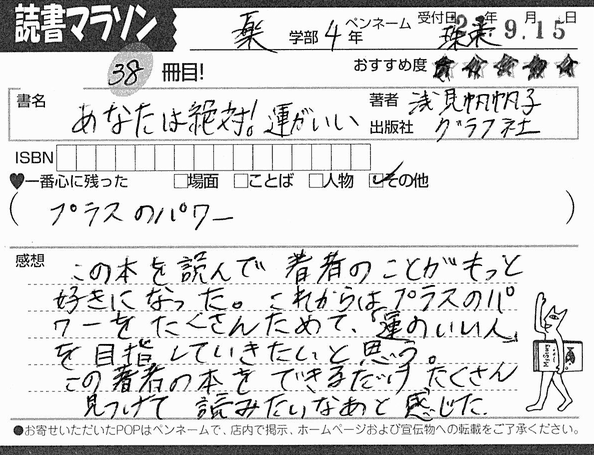 読書マラソン
薬 学部 4年 ペンネーム 珠来 受付日 年 9月15日
38 冊目! おすすめ度 ★★★★★
書名 あなたは絶対!運がいい 著者 浅見帆帆子
出版社 グラフ社
ISBN
♥一番心に残った □場面 □ことば □人物 ☑その他
( プラスのパワー )
感想 この本を読んで著者のことがもっと
好きになった。これからはプラスのパ
ワーをたくさんためて、「運のいい人」
を目指していきたいと思う。
この著者の本をできるだけたくさん
見つけて読みたいなあと感じた.
●お寄せいただいたPOPはペンネームで、店内で掲示、ホームページおよび宣伝物への転載をご了承ください。